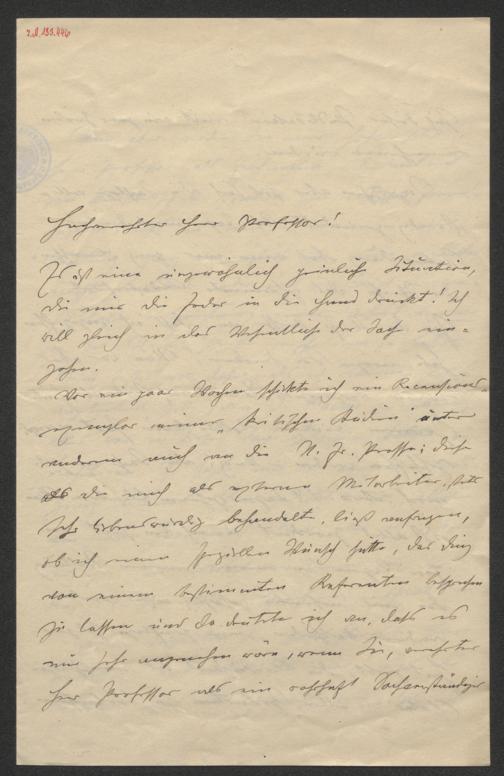 I.N. 195.446
Hochverehrter Herr Professor!
Es ist eine ungewöhnlich peinliche Situation,
die mir die Feder in die Hand drückt! Ich
will gleich in das Wesentliche der Sache ein-
gehen.
Vor ein paar Wochen schickte ich ein Recensions-
exemplar meiner „Kritischen Studien" unter
anderem auch an die N. Fr. Presse; diese
die mich als externen Mitarbeiter stets
sehr liebenswürdig behandelte, ließ anfragen,
ob ich einen speziellen Wunsch hätte, das Ding
von einem bestimmten Referenten besprechen
zu lassen und da deutete ich an, dass es
mir sehr angenehm wäre, wenn Sie, verehrter
Herr Professor als ein wahrhaft Sachverständiger